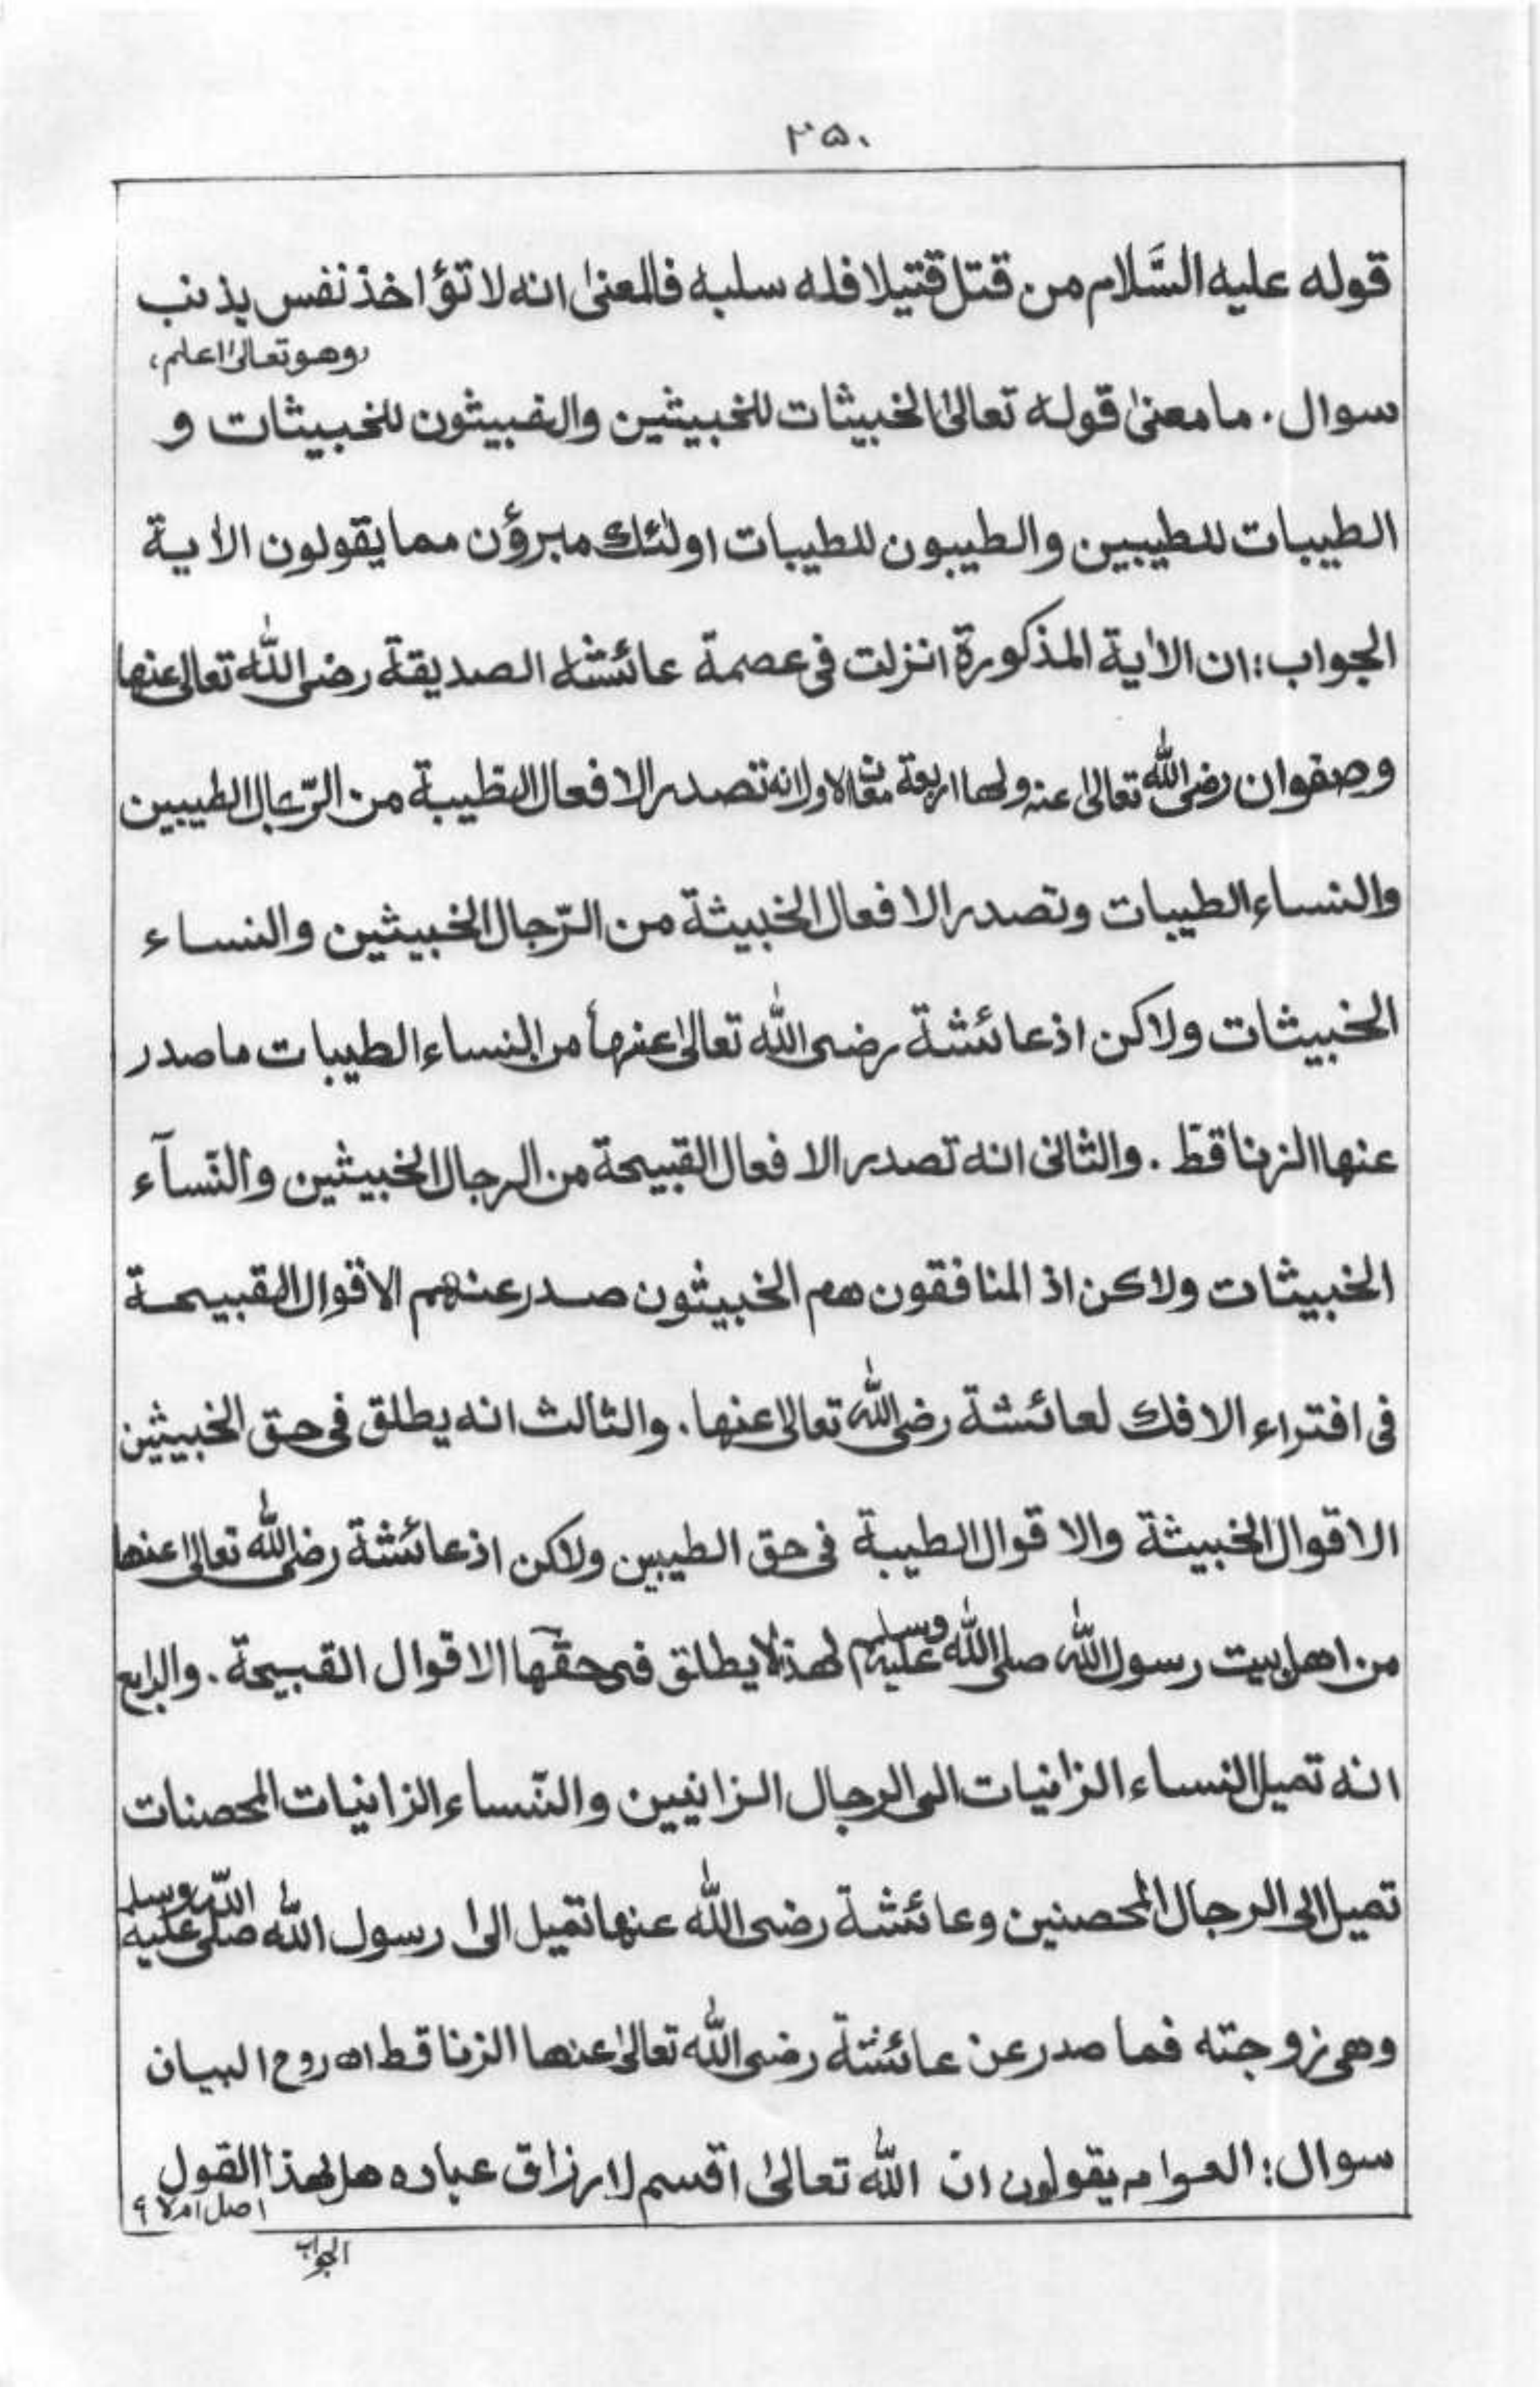 ۲۵۰
قوله عليه السَّلام من قتل قتيلا فله سلبه فالمعنىٰ انه لا تؤاخذ نفس بذنب
وهو تعالىٰ اعلم
سوال. ما معنىٰ قوله تعالىٰ الخبيثات للخبيثين والخبيثون للخبيثات و
الطيبات للطيبين والطيبون للطيبات اولٰئك مبرؤن مما يقولون الاٰية
الجواب: ان الاٰية المذكورة انزلت فى عصمة عائشه الصديقة رضى اللّٰه تعالى عنها
وصفوان رضى اللّٰه تعالىٰ عنه ولها اربعة معان الاول انه تصدر الافعال الطيبة من الرّجال الطيبين
والنساء الطيبات وتصدر الافعال الخبيثة من الرّجال الخبيثين والنساء
الخبيثات ولاكن اذ عائشة رضى اللّٰه تعالىٰ عنها من النساء الطيبات ما صدر
عنها الزنا قط. والثانى انه تصدر الافعال القبيحة من الرجال الخبيثين والنّسآء
الخبيثات ولاكن اذ المنافقون هم الخبيثون صدر عنهم الاقوال القبيحة
فى افتراء الافك لعائشة رضى اللّٰه تعالىٰ عنها. والثالث انه يطلق فى حق الخبيثين
الاقوال الخبيثة والاقوال الطيبة فى حق الطيبين ولاكن اذ عائشة رضى اللّٰه تعالىٰ عنها
من اهل بيت رسول اللّٰه صلى اللّٰه عليه وسلم لهذا لا يطلق فى حقها الاقوال القبيحة. والرابع
انه تميل النساء الزانيات الى الرجال الزانيين والنّساء الزانيات المحصنات
تميل الى الرجال المحصنين وعائشة رضى اللّٰه عنها تميل الىٰ رسول اللّٰه صلى اللّٰه عليه وسلم
وهى زوجته فما صدر عن عائشة رضى اللّٰه تعالىٰ عنها الزنا قط اه روح البيان
سوال: العوام يقولون ان اللّٰه تعالىٰ اقسم لارزاق عباده هل لهذا القول
اصل ام لا ؟
الجواب